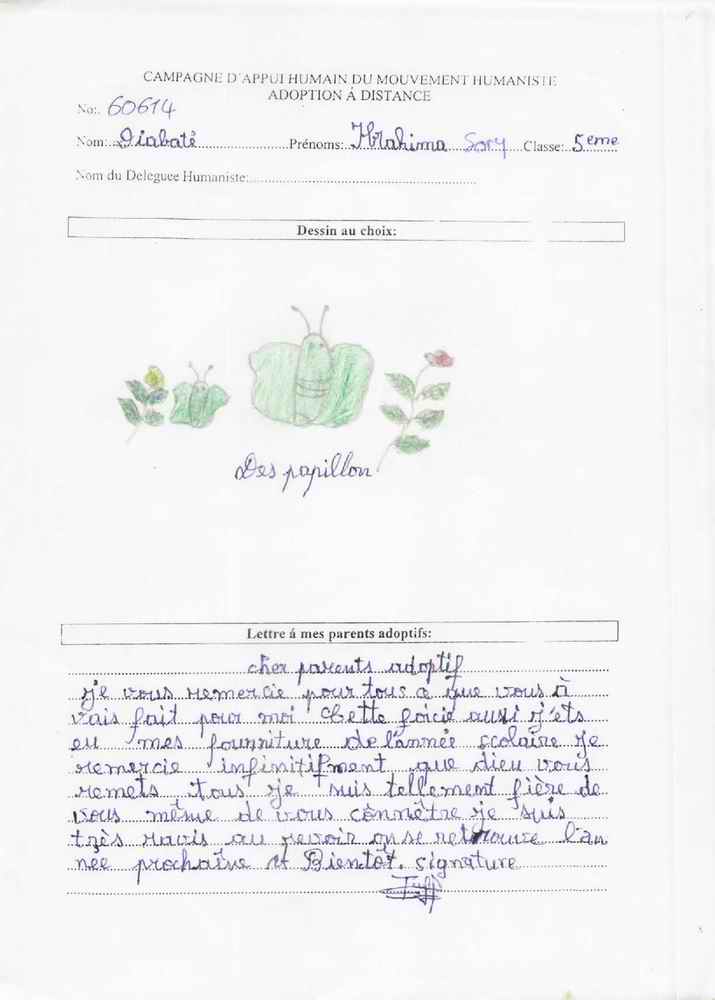 CAMPAGNE D'APPUI HUMAIN DU MOUVEMENT HUMANISTE
ADOPTION Á DISTANCE
No:. 60614
Nom:..Diabaté......Prénoms:..Ibrahima Sory...Classe:..5eme
Nom du Deleguee Humaniste:......
Dessin au choix:
Des papillon
Lettre á mes parents adoptifs:
cher parents adoptif
je vous remercie pour tous ce que vous à
vais fait pour moi Cette foicie aussi j'ets
eu mes fourniture de l'année scolaire je
remercie infinitifment que dieu vous
remets tous je suis tellement fière de
vous même de vous cònnêtre je suis
très ravis au revoir on se retrouve l'an
née prochaîne A Bientôt. signature